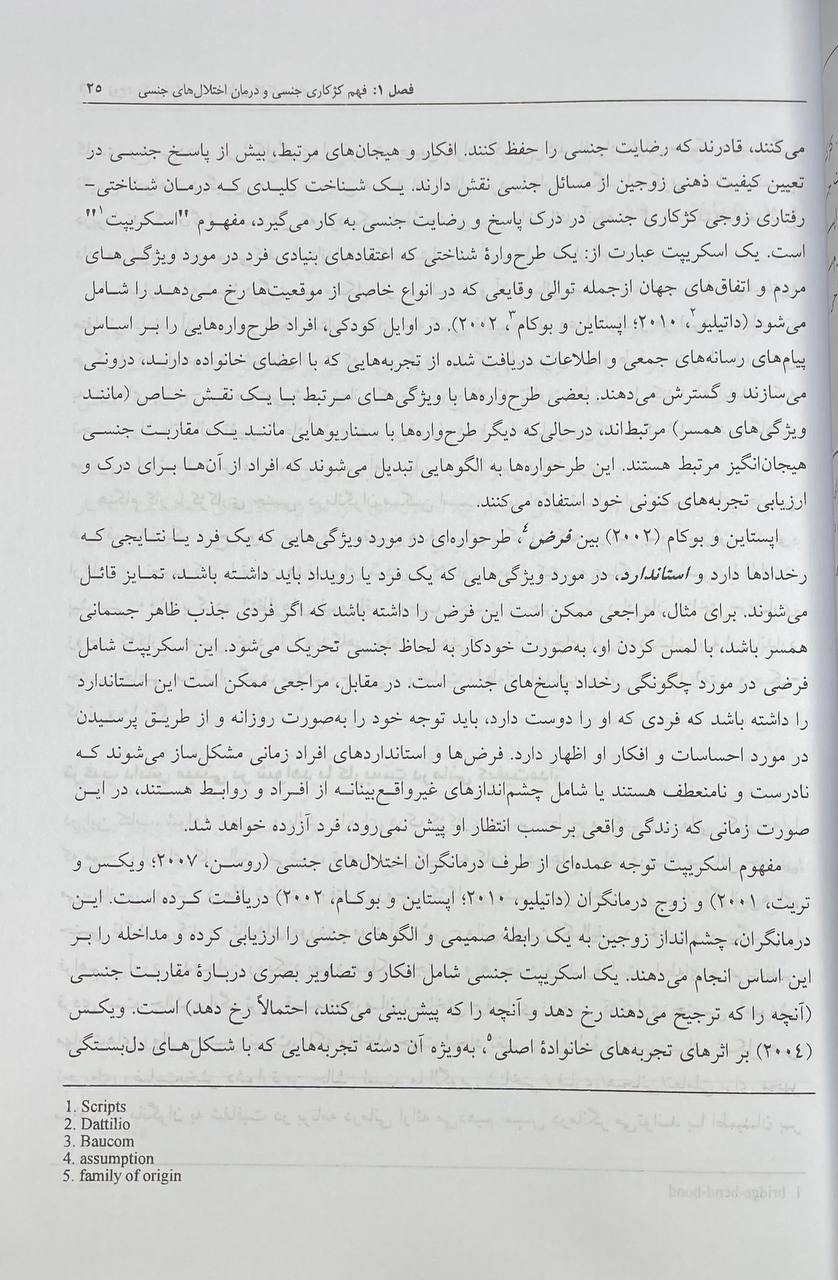 فصل ۱: فهم کژکاری جنسی و درمان اختلال‌های جنسی ۲۵
می‌کنند، قادرند که رضایت جنسی را حفظ کنند. افکار و هیجان‌های مرتبط، بیش از پاسخ جنسی در
تعیین کیفیت ذهنی زوجین از مسائل جنسی نقش دارند. یک شناخت کلیدی که درمان شناختی-
رفتاری زوجی کژکاری جنسی در درک پاسخ و رضایت جنسی به کار می‌گیرد، مفهوم "اسکریپت۱"
است. یک اسکریپت عبارت از: یک طرح‌وارهٔ شناختی که اعتقادهای بنیادی فرد در مورد ویژگی‌های
مردم و اتفاق‌های جهان ازجمله توالی وقایعی که در انواع خاصی از موقعیت‌ها رخ می‌دهد را شامل
می‌شود (داتیلیو۲، ۲۰۱۰؛ اپستاین و بوکام۳، ۲۰۰۲). در اوایل کودکی، افراد طرح‌واره‌هایی را بر اساس
پیام‌های رسانه‌های جمعی و اطلاعات دریافت شده از تجربه‌هایی که با اعضای خانواده دارند، درونی
می‌سازند و گسترش می‌دهند. بعضی طرح‌واره‌ها با ویژگی‌های مرتبط با یک نقش خاص (مانند
ویژگی‌های همسر) مرتبط‌اند، درحالی‌که دیگر طرح‌واره‌ها با سناریوهایی مانند یک مقاربت جنسی
هیجان‌انگیز مرتبط هستند. این طرحواره‌ها به الگوهایی تبدیل می‌شوند که افراد از آن‌ها برای درک و
ارزیابی تجربه‌های کنونی خود استفاده می‌کنند.
اپستاین و بوکام (۲۰۰۲) بین فرض۴، طرحواره‌ای در مورد ویژگی‌هایی که یک فرد یا نتایجی که
رخدادها دارد و استاندارد، در مورد ویژگی‌هایی که یک فرد یا رویداد باید داشته باشد، تمایز قائل
می‌شوند. برای مثال، مراجعی ممکن است این فرض را داشته باشد که اگر فردی جذب ظاهر جسمانی
همسر باشد، با لمس کردن او، به‌صورت خودکار به لحاظ جنسی تحریک می‌شود. این اسکریپت شامل
فرضی در مورد چگونگی رخداد پاسخ‌های جنسی است. در مقابل، مراجعی ممکن است این استاندارد
را داشته باشد که فردی که او را دوست دارد، باید توجه خود را به‌صورت روزانه و از طریق پرسیدن
در مورد احساسات و افکار او اظهار دارد. فرض‌ها و استانداردهای افراد زمانی مشکل‌ساز می‌شوند که
نادرست و نامنعطف هستند یا شامل چشم‌اندازهای غیرواقع‌بینانه از افراد و روابط هستند، در این
صورت زمانی که زندگی واقعی برحسب انتظار او پیش نمی‌رود، فرد آزرده خواهد شد.
مفهوم اسکریپت توجه عمده‌ای از طرف درمانگران اختلال‌های جنسی (روسن، ۲۰۰۷؛ ویکس و
تریت، ۲۰۰۱) و زوج درمانگران (داتیلیو، ۲۰۱۰؛ اپستاین و بوکام، ۲۰۰۲) دریافت کرده است. این
درمانگران، چشم‌انداز زوجین به یک رابطهٔ صمیمی و الگوهای جنسی را ارزیابی کرده و مداخله را بر
این اساس انجام می‌دهند. یک اسکریپت جنسی شامل افکار و تصاویر بصری دربارهٔ مقاربت جنسی
(آنچه را که ترجیح می‌دهند رخ دهد و آنچه را که پیش‌بینی می‌کنند، احتمالاً رخ دهد) است. ویکس
(۲۰۰۴) بر اثرهای تجربه‌های خانوادهٔ اصلی۵، به‌ویژه آن دسته تجربه‌هایی که با شکل‌های دل‌بستگی
1. Scripts
2. Dattilio
3. Baucom
4. assumption
5. family of origin